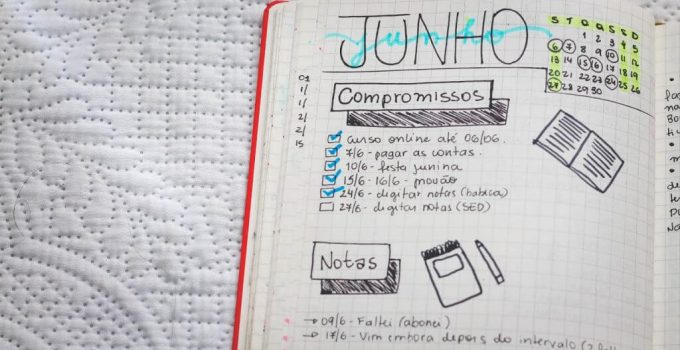 JUNHO
junho
S T Q Q S S D
1 2 3 4 5
6 7 8 9 10 11 12
13 14 15 16 17 18 19
20 21 22 23 24 25 26
27 28 29 30
01
1/
1/
2/
2/
15
Compromissos
Curso online até 06/06.
7/6 - pagar as contas.
10/6 - festa junina
15/6 - 16/6 - provão
24/6 - digitar notas (habica)
27/6 - digitar notas (SED)
Notas
→ 09/6 - Faltei (abonei)
→ 17/6 - Vim embora depois do intervalo